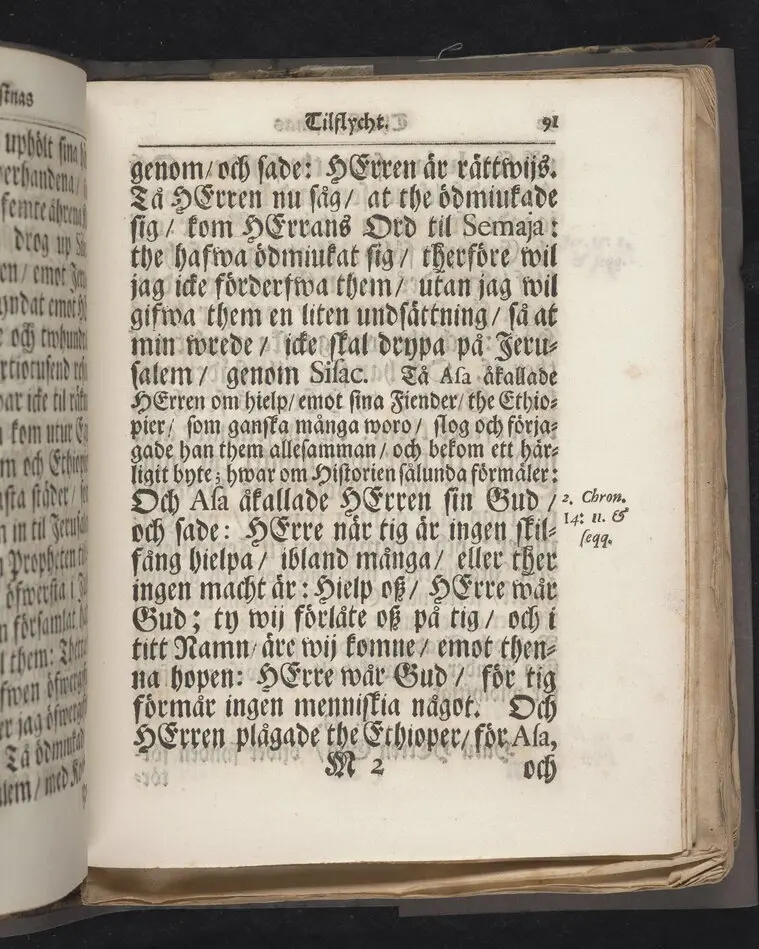 Tilflycht. 91
genom/ och sade: HErren är rättwijs.
Tå HErren nu såg/ at the ödmiukade
sig/ kom HErrans Ord til Semaja:
the hafwa ödmiukat sig/ therföre wil
jag icke förderfwa them/ utan jag wil
gifwa them en liten undsättning/ så at
min wrede/ icke skal drypa på Jeru⸗
salem/ genom Sisac. Tå Asa åkallade
HErren om hielp/ emot sina Fiender/ the Ethio⸗
pier/ som ganska många woro/ slog och förja⸗
gade han them allesamman/ och bekom ett här⸗
ligit byte; hwar om Historien sålunda förmäler:
Och Asa åkallade HErren sin Gud/
2. Chron.
14: 11. &
seqq.
och sade: HErre när tig är ingen skil⸗
fång hielpa/ ibland många/ eller ther
ingen macht är: Hielp oß/ HErre wår
Gud; ty wij förlåte oß på tig/ och i
titt Namn/ äre wij komne/ emot then⸗
na hopen: HErre wår Gud/ för tig
förmår ingen menniskia något. Och
HErren plågade the Ethioper/ för Asa,
M 2 och
uphölt sina
femte
drog up
/ emot
emot
och
icke til
kom utur
m och
städer/
in til
Propheten
öfwersta i
församlat
them:
jag
Tå ödmiukad
/ med